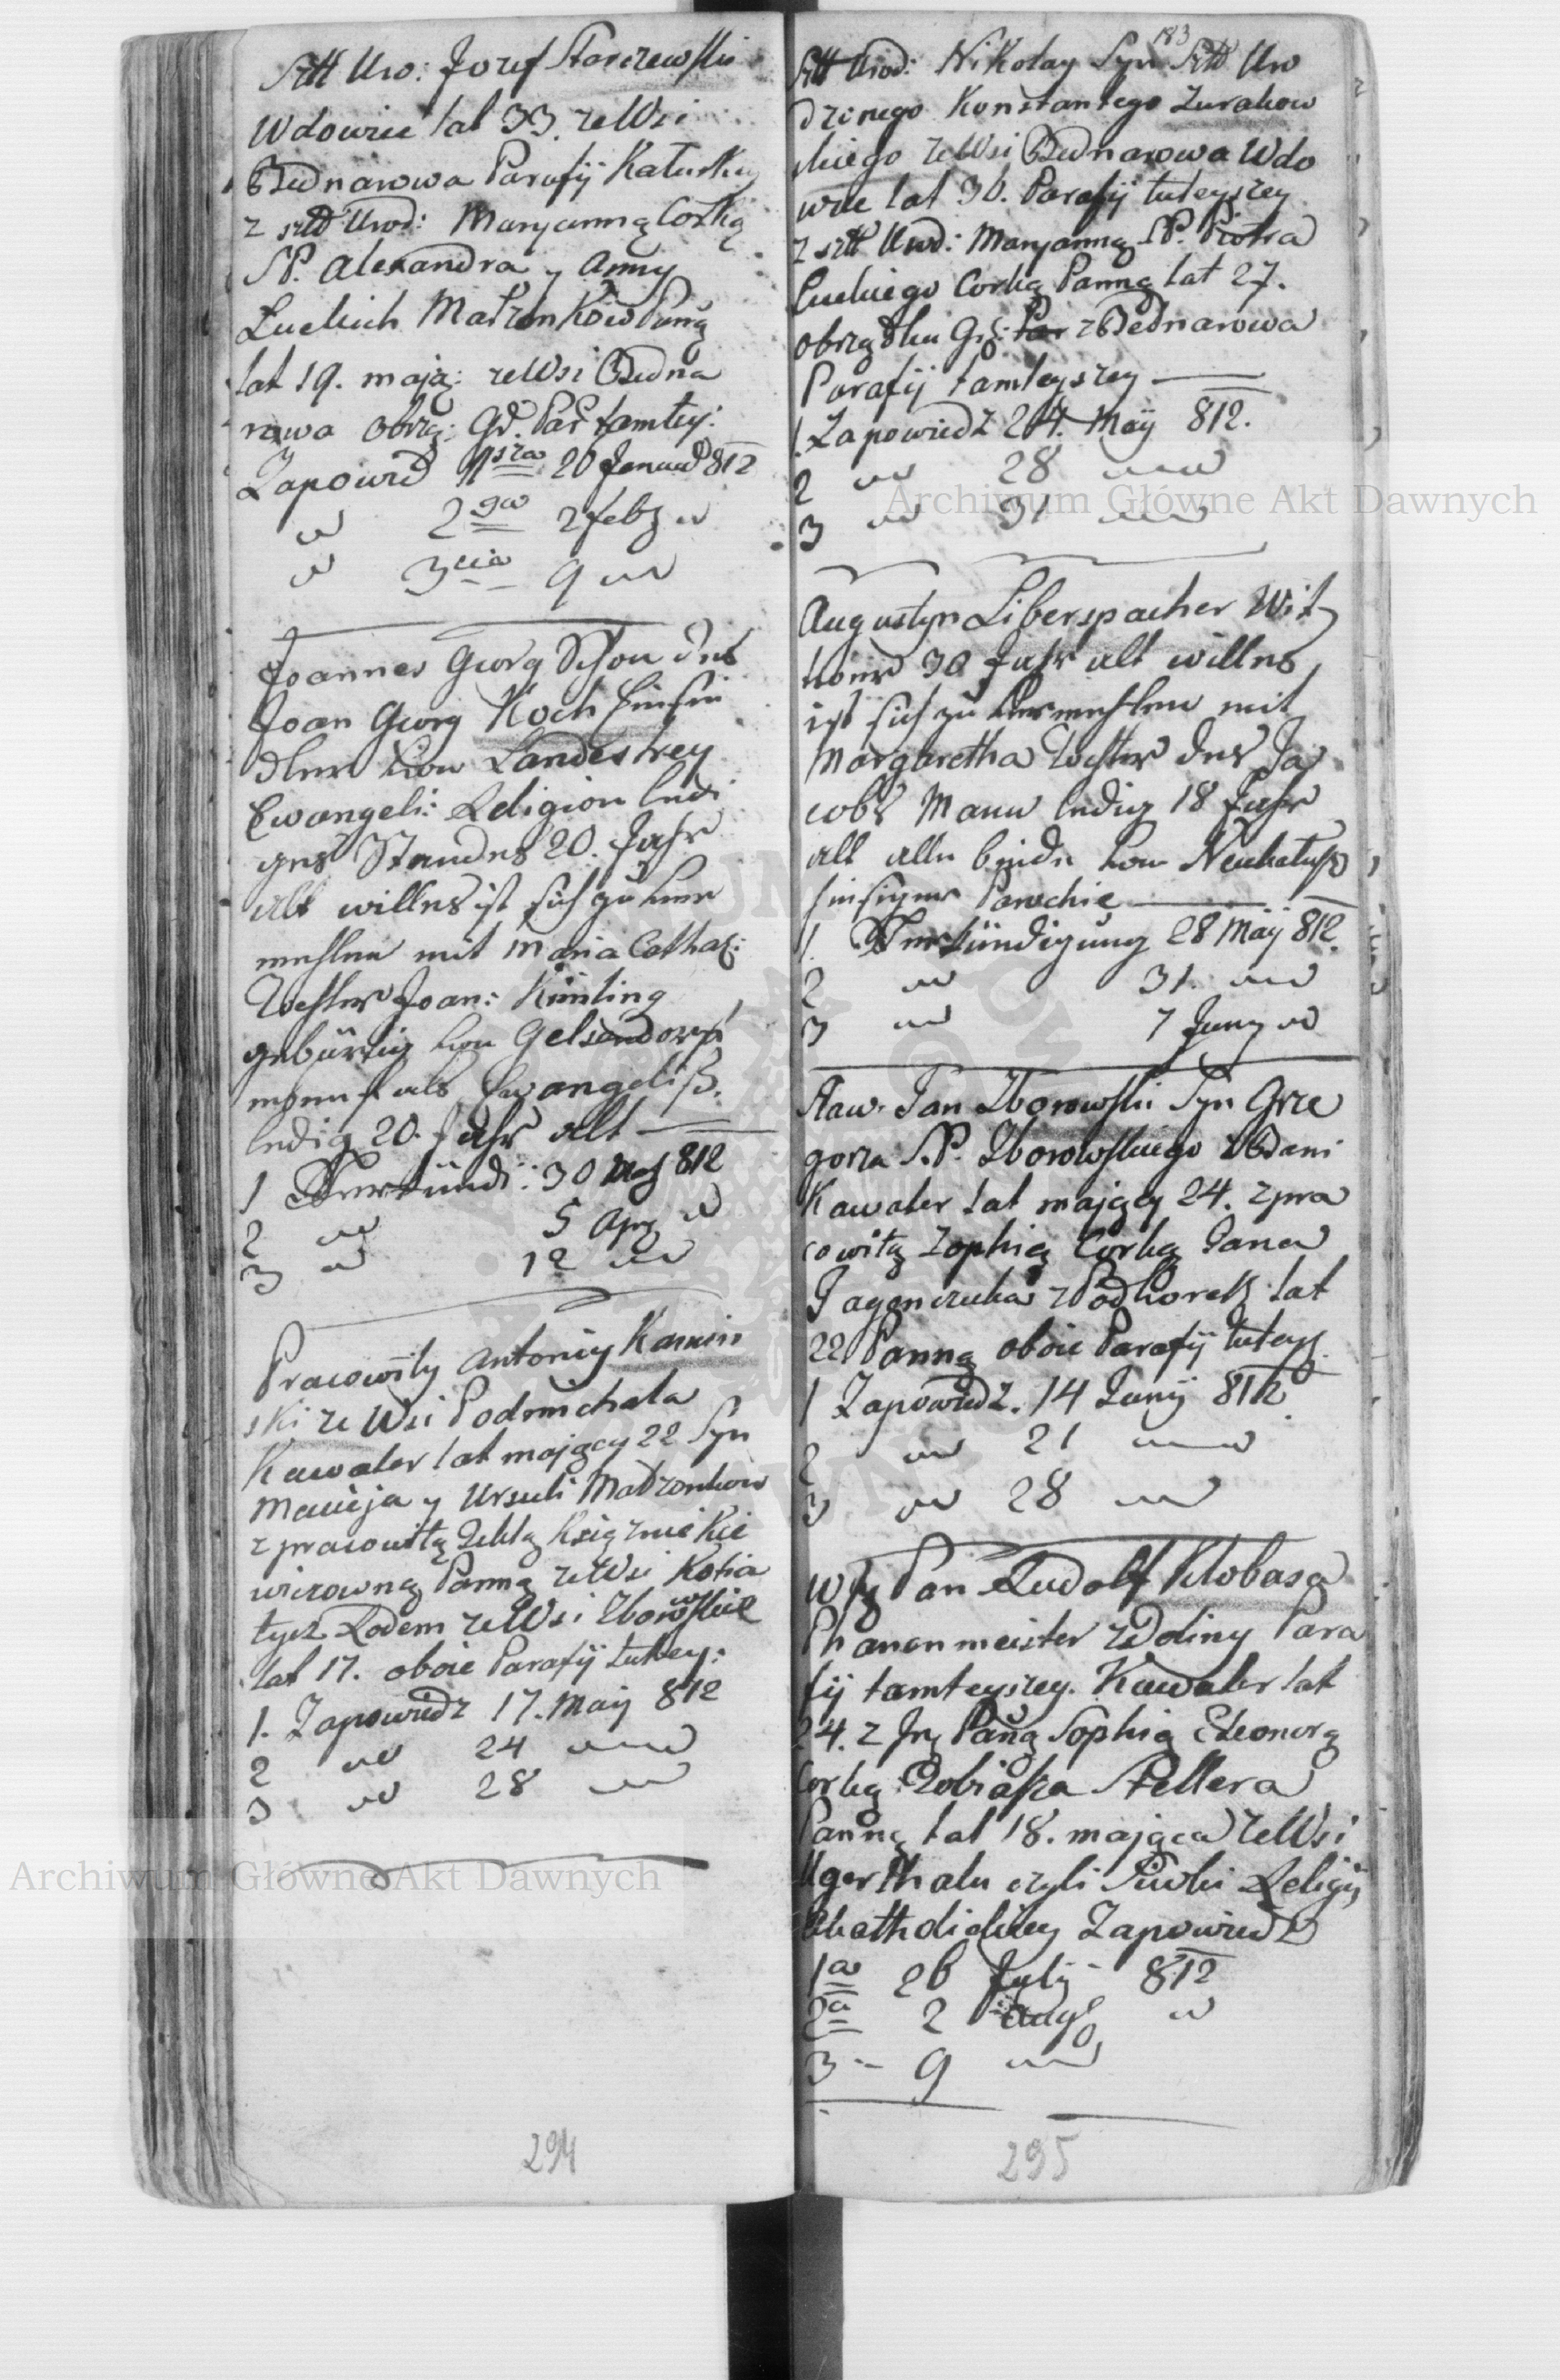 Szltt Uro: Jozef Starzewski
Wdowiec lat 33. ze Wsi
Bednarowa Parafij Kałuskiy
z szltt Urod: Maryanną Corką
SP. Alexandra y Anny
Luckich Małżonkow Panną
lat 19. mają: ze Wsi Bedna
rowa obrzą: Gr. Par tamtey:
Zapowied 1sza 20 Januar 812
" 2ga 2 Febr "
" 3cia 9 "
Joannes Georg Sohn des
Joan Georg Koch
von Landestrey
Ewangeli: Religion ledi
ges Standes 20. Jahr
alt willens ist sich zu ver
mehlen mit Maria Cathar:
Tochter Joan: Kinling
gebürtig von Gelsendorf
Ewangelisch.
ledig 20. Jahr alt
1 Verkündi: 30 812
2 " 5 Apr "
3 " 12 "
Pracowity Antoniy Kamin
ski ze Wsi Podmichala
Kawaler lat mający 22 Syn
Macieja y Ursuli Małżonkow
z pracowitą Teklą Księżniekie
wiczowną Panną ze Wsi Kotia
tycz Rodem ze Wsi Zborowskie
lat 17. oboie Parafij tutey:
1. Zapowiedz 17. Maij 812
2 " 24 "
3 " 28 "
294
183
Szltt Urod: Nikolay Syn Szltt Uro
dzonego Konstantego Zurakow
skiego ze Wsi Bednarowa Wdo
wiec lat 36. Parafij tuteyszey
z szltt Urod: Maryanną SP. Piotra
Luckiego Corką Panną lat 27.
obrządku Gr: z Bednarowa
Parafij tamteyszey
1. Zapowiedz 24. Maij 812.
2 " 28 "
3 " 31 "
Augustyn Liberspacher Wit
wer 30 Jahr alt willens
ist sich zu vermehlen mit
Margaretha Tochter des Ja
cobs Mann ledig 18 Jahr
alt alle beide von Neukalusz
hiesiger Parochie
1. Verkündigung 28 Maij 812.
2 " 31. "
3 " 7 Juny "
Sław. Jan Zborowski Syn Grze
gorza S.P. Zborowskiego z Bani
Kawaler lat mający 24. z pra
cowitą Zophią Corką Jana
Jagenczuka z Podhorek lat
22 Panną oboie Parafij tuteysz
1 Zapowiedz. 14 Junij 812
2 " 21 "
3 " 28 "
Pan Rudolf Klobasa
Phanenmeister z Doliny Para
fij tamteyszey. Kawaler lat
24. z Panną Sophią Eleonorą
Corką Tobiasza Stellera
Panną lat 18. mająca ze Wsi
Ugerthalu czyli Siwki Religij
Khatholickiey Zapowiedz
1a 26 July 812
2a 2 Aug "
3 - 9 "
295
Archiwum Główne Akt Dawnych
Archiwum Główne Akt Dawnych